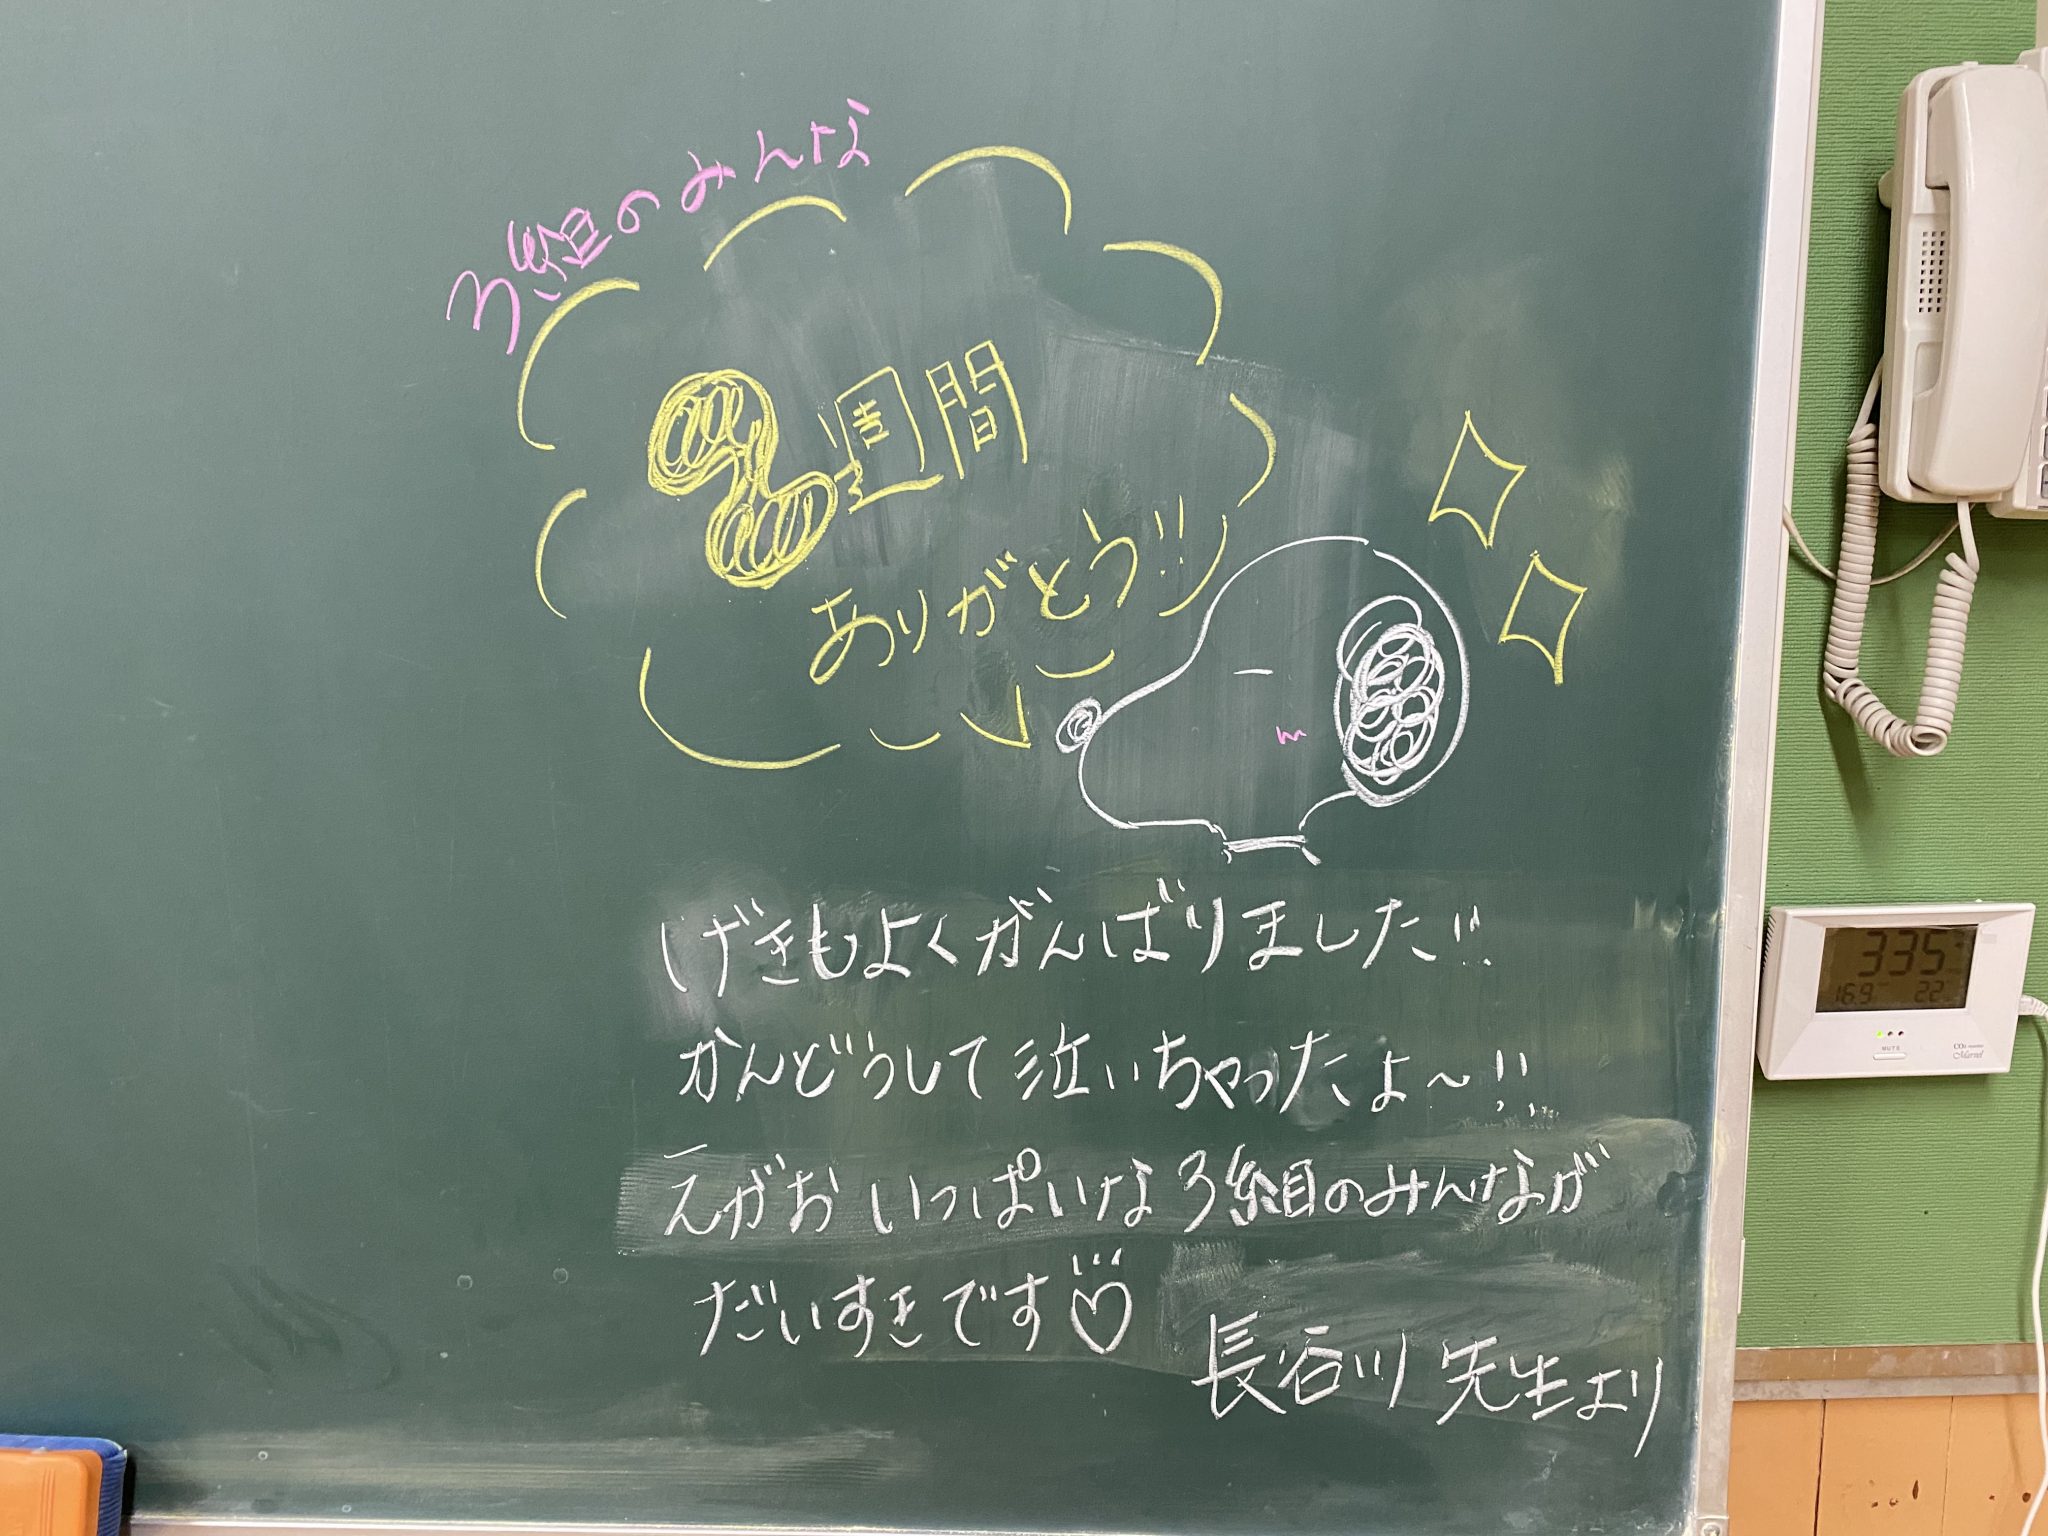 3組のみんな
週間
ありがとう!!
げきもよくがんばりました!!
かんどうして泣いちゃったよ～!!
えがおいっぱいな3組のみんなが
だいすきです♡
長谷川先生より
335
16.9 22
MUTE
CO2 monitor
Marvel